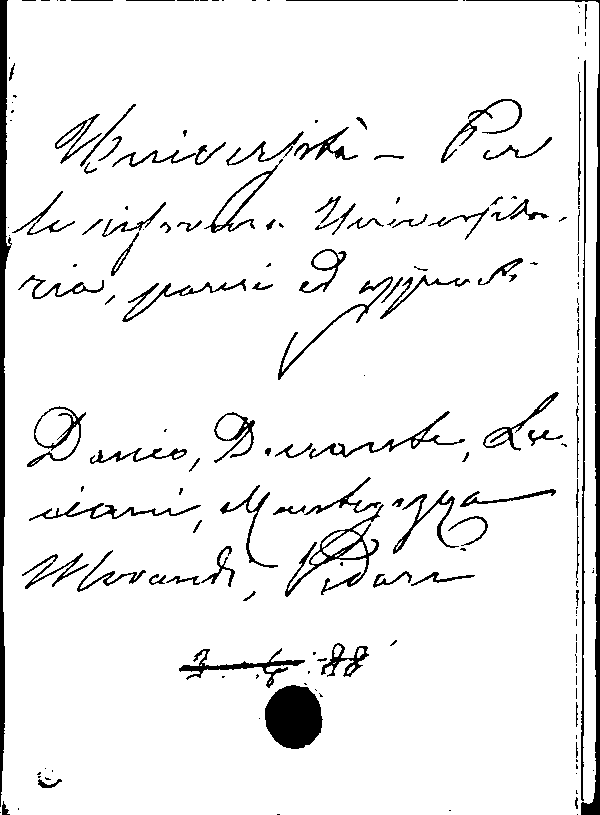 Università - Per
la riforma Universita-
ria, pareri ed appunti
Danieo, Durante, Lu-
ciani, Mantegazza
Morandi, Vidari
3. 4. 88